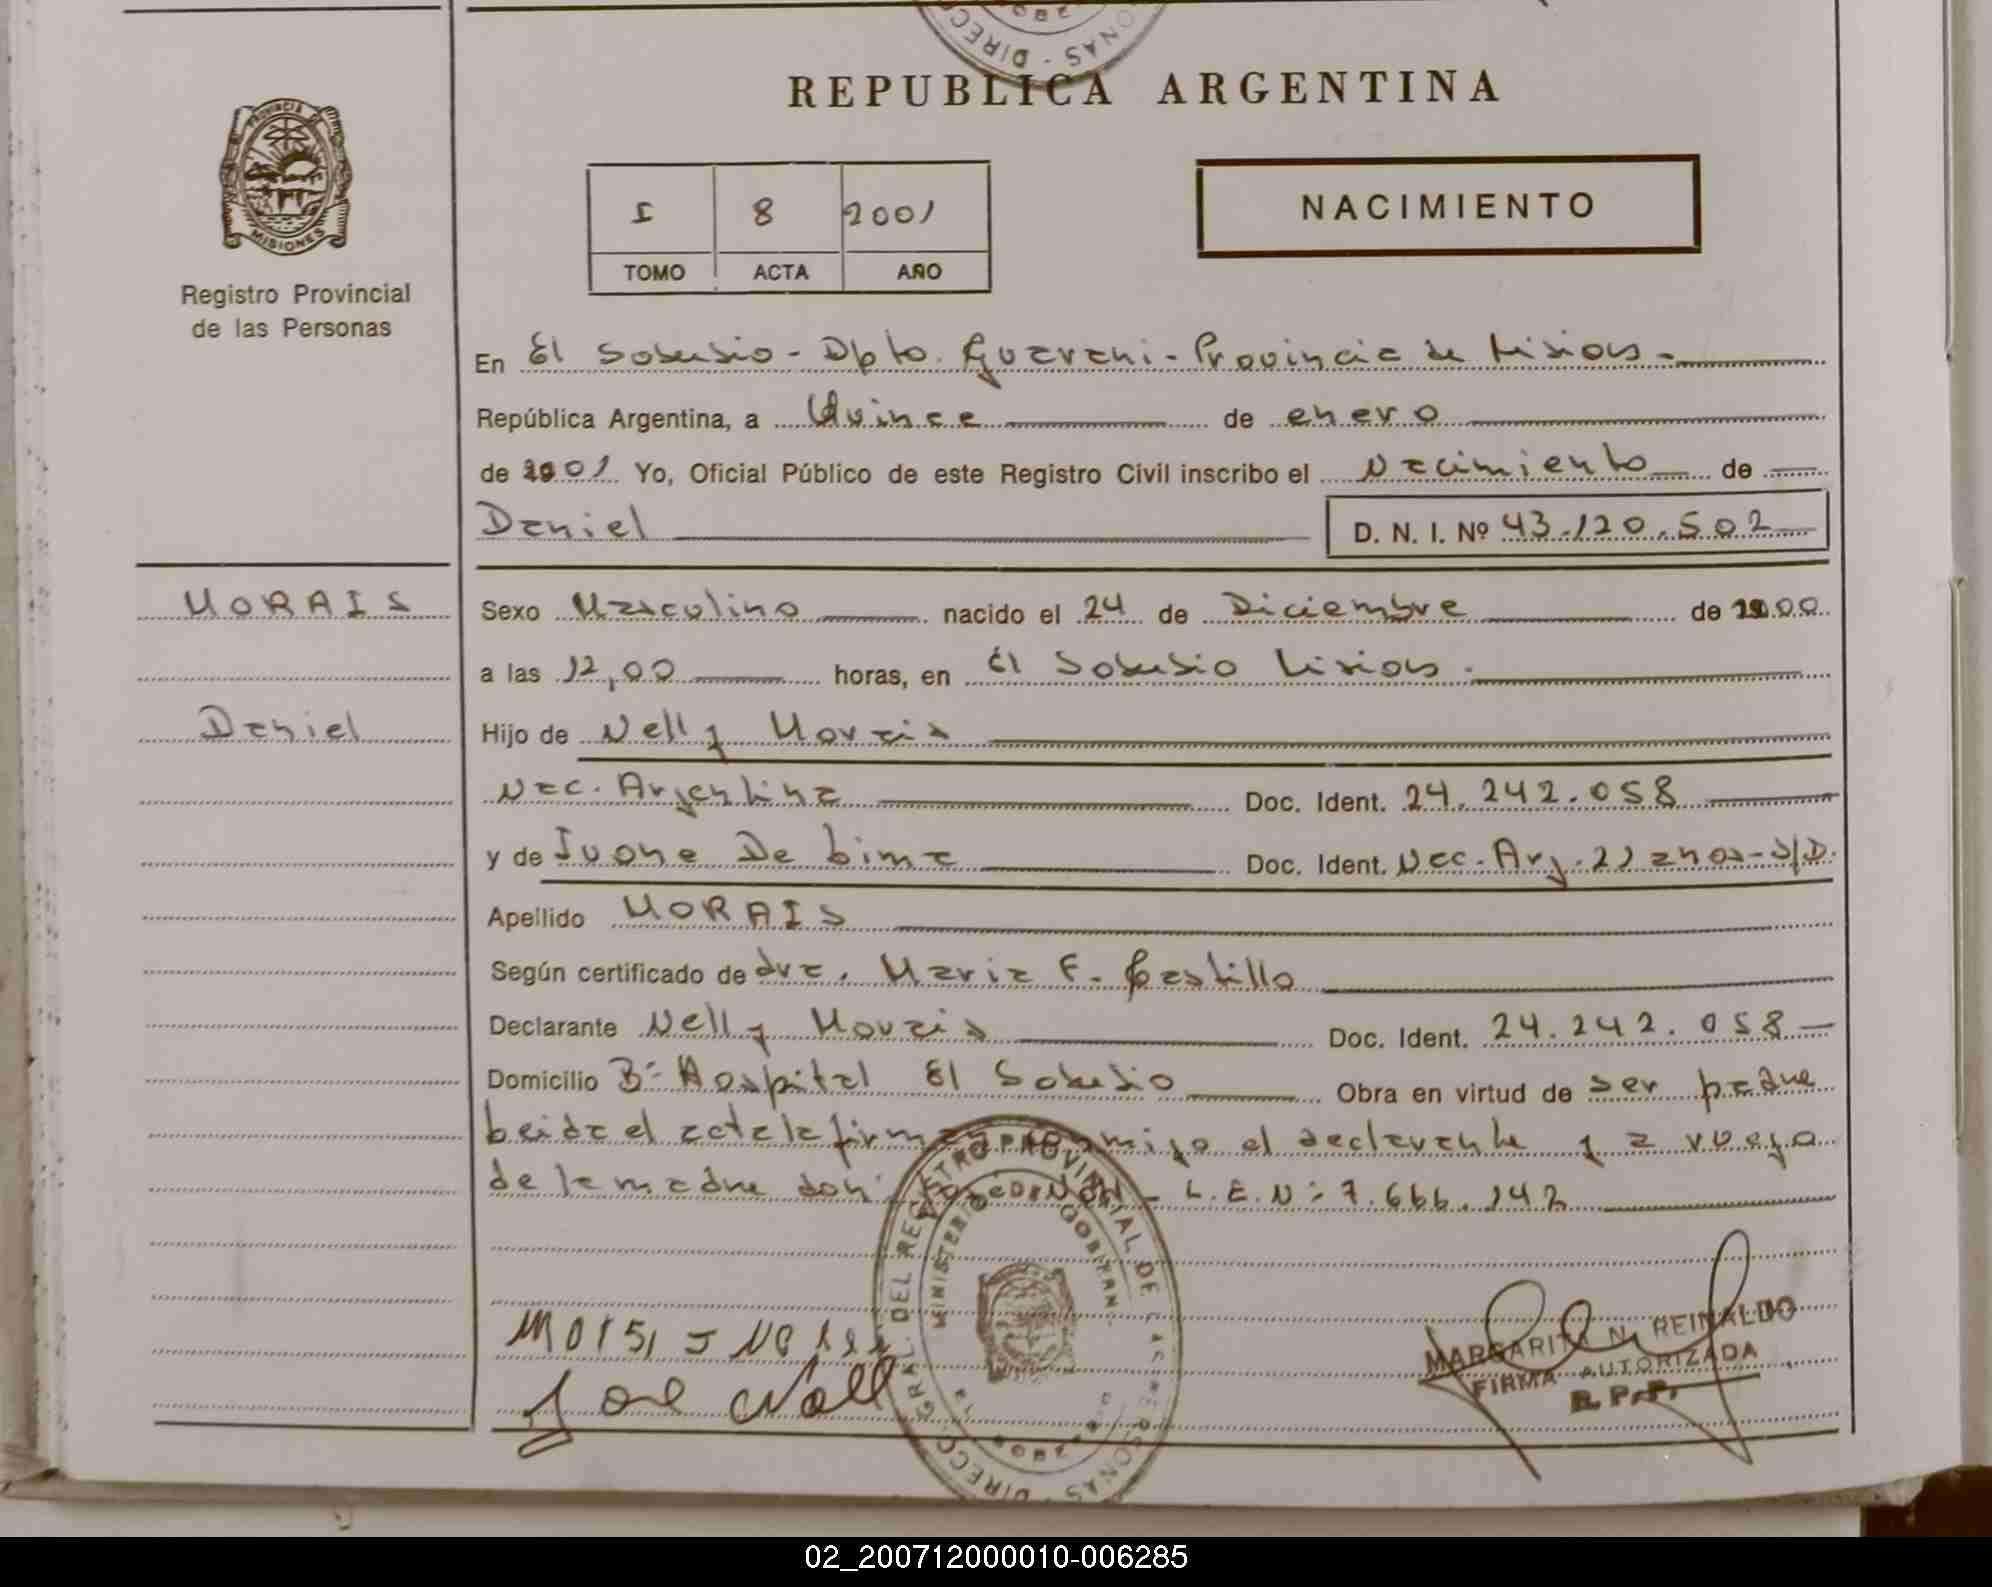 REPUBLICA ARGENTINA
PROVINCIA DE
MISIONES
Registro Provincial
de las Personas
I 8 2001
TOMO ACTA AÑO
NACIMIENTO
En El Soberbio - Dpto. Guarani - Provincia de Misiones -
República Argentina, a Quince de enero
de 2001 Yo, Oficial Público de este Registro Civil inscribo el Nacimiento de
Daniel D. N. I. Nº 43.120.502
MORAIS
Daniel
Sexo Masculino nacido el 24 de Diciembre de 2000
a las 12,00 horas, en El Soberbio Misiones.
Hijo de Nelly Morais
Nac. Argentina Doc. Ident. 24.242.058
y de Ivone De Lima Doc. Ident. Nac. Arg. 22 años - S/D.
Apellido MORAIS
Según certificado de dra. Maria F. Castillo
Declarante Nelly Morais Doc. Ident. 24.242.058
Domicilio Bº Hospital El Soberbio Obra en virtud de ser padre
Leida el acta la firman conmigo el declarante y a ruego
de la madre don L.E.Nº 7.666.142
DIRECC. GRAL. DEL REGISTRO PROVINCIAL DE LAS PERSONAS
MINISTERIO DE GOBIERNO
MARGARITA N. REINALDO
FIRMA AUTORIZADA
R. P. P.
02_200712000010-006285